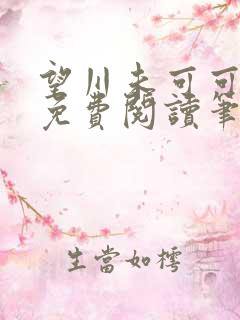 望川未可可
免費閱讀筆
生當如樗